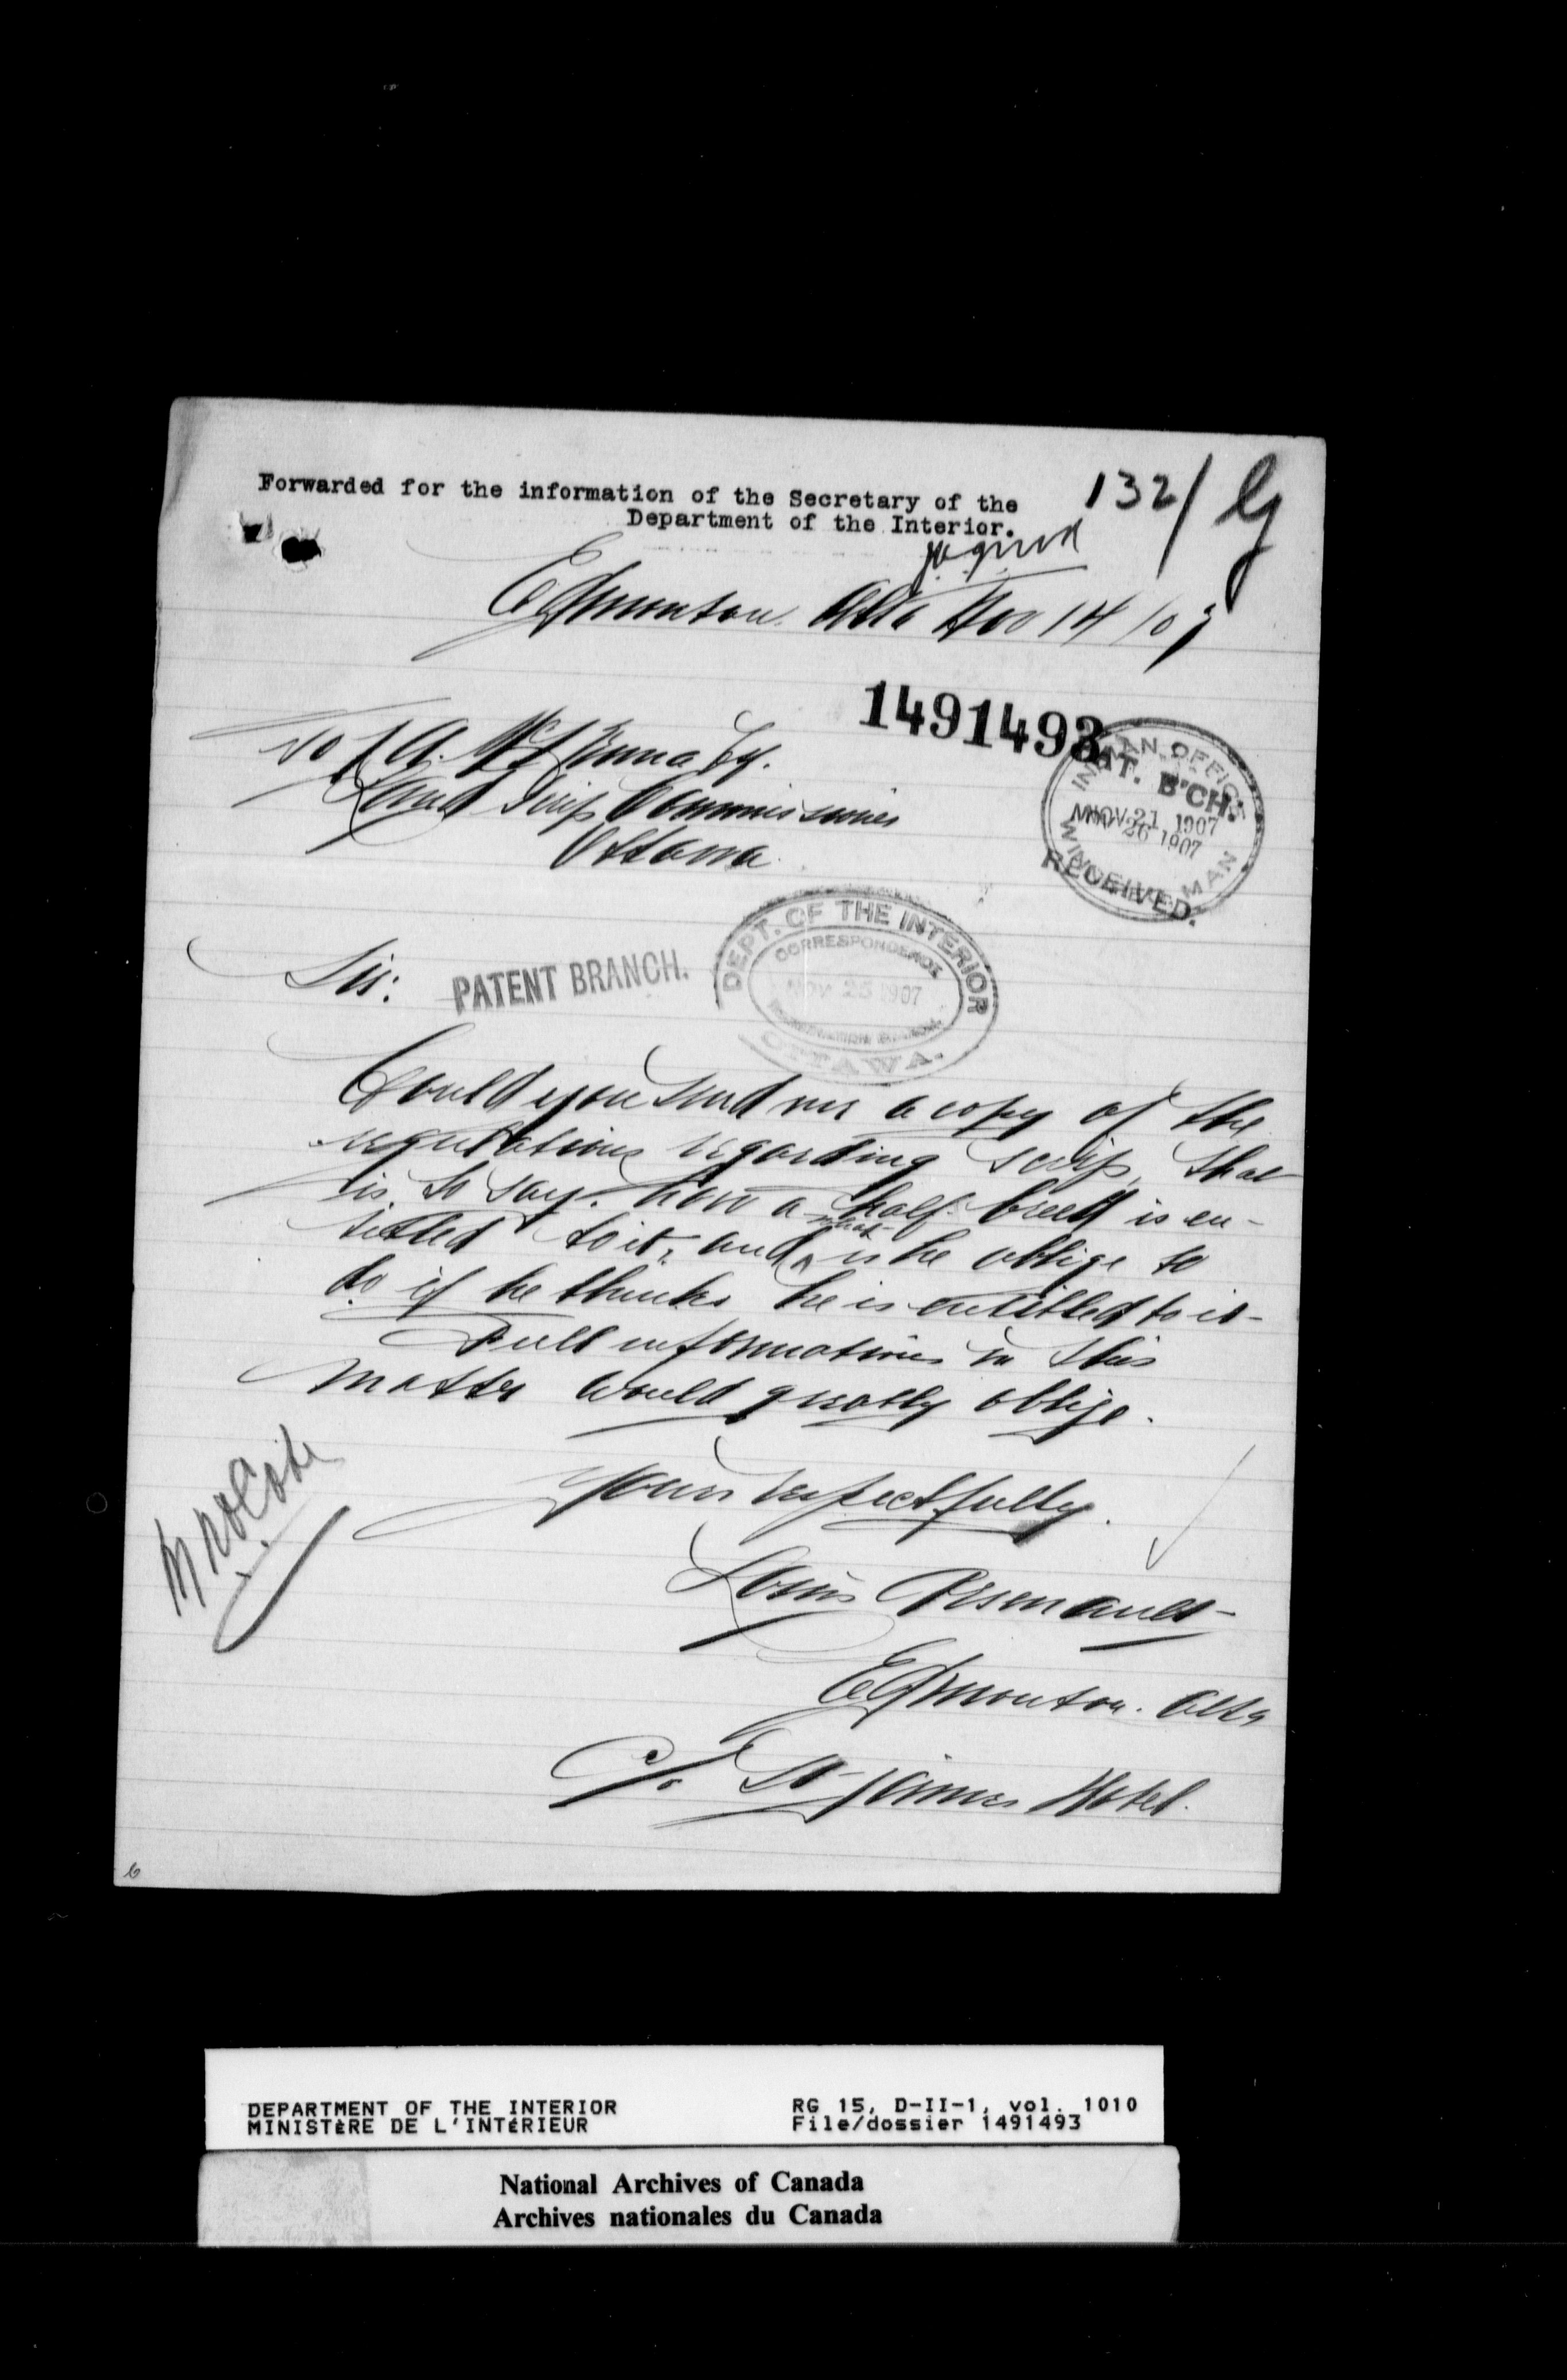 Forwarded for the information of the Secretary of the
Department of the Interior.
132/
Edmonton. Alta Nov 14/07
1491493
To J A. McKenna Esq.
Land Scrip Commissioner
Ottawa.
INDIAN OFFICE
PAT. B'CH.
NOV 21 1907
NOV 26 1907
WINNIPEG MAN
RECEIVED.
Sir:
PATENT BRANCH.
DEPT. OF THE INTERIOR
CORRESPONDENCE
NOV 25 1907
OTTAWA.
Could you send me a copy of the
regulations regarding scrip, that
is to say. how a half breed is en-
titled to it, and what is he oblige to
do if he thinks he is entitled to it-
Full informations in this
matter would greatly oblige.
Yours respectfully.
Louis Arsenault-
Edmonton. Alta
C/o St-James Hotel.
Mr Côté
6
DEPARTMENT OF THE INTERIOR
MINISTÈRE DE L'INTÉRIEUR
RG 15, D-II-1, vol. 1010
File/dossier 1491493
National Archives of Canada
Archives nationales du Canada